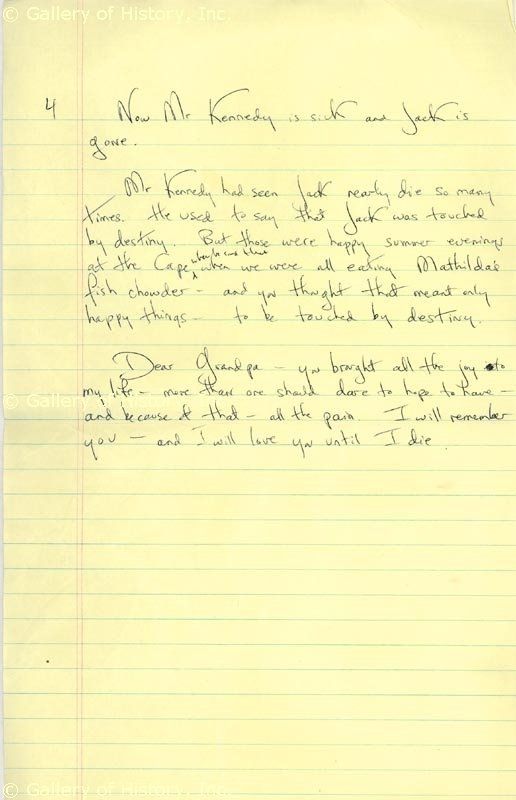 © Gallery of History, Inc.
4 Now Mr Kennedy is sick and Jack is
gone.
Mr Kennedy had seen Jack nearly die so many
times. He used to say that Jack was touched
by destiny. But those were happy summer evenings
when he said that
at the Cape when we were all eating Mathilda's
fish chowder – and you thought that meant only
happy things – to be touched by destiny.
Dear Grandpa – you brought all the joy to
my life – more than one should dare to hope to have –
© Gallery of History, Inc.
and because of that – all the pain. I will remember
you – and I will love you until I die
© Gallery of History, Inc.